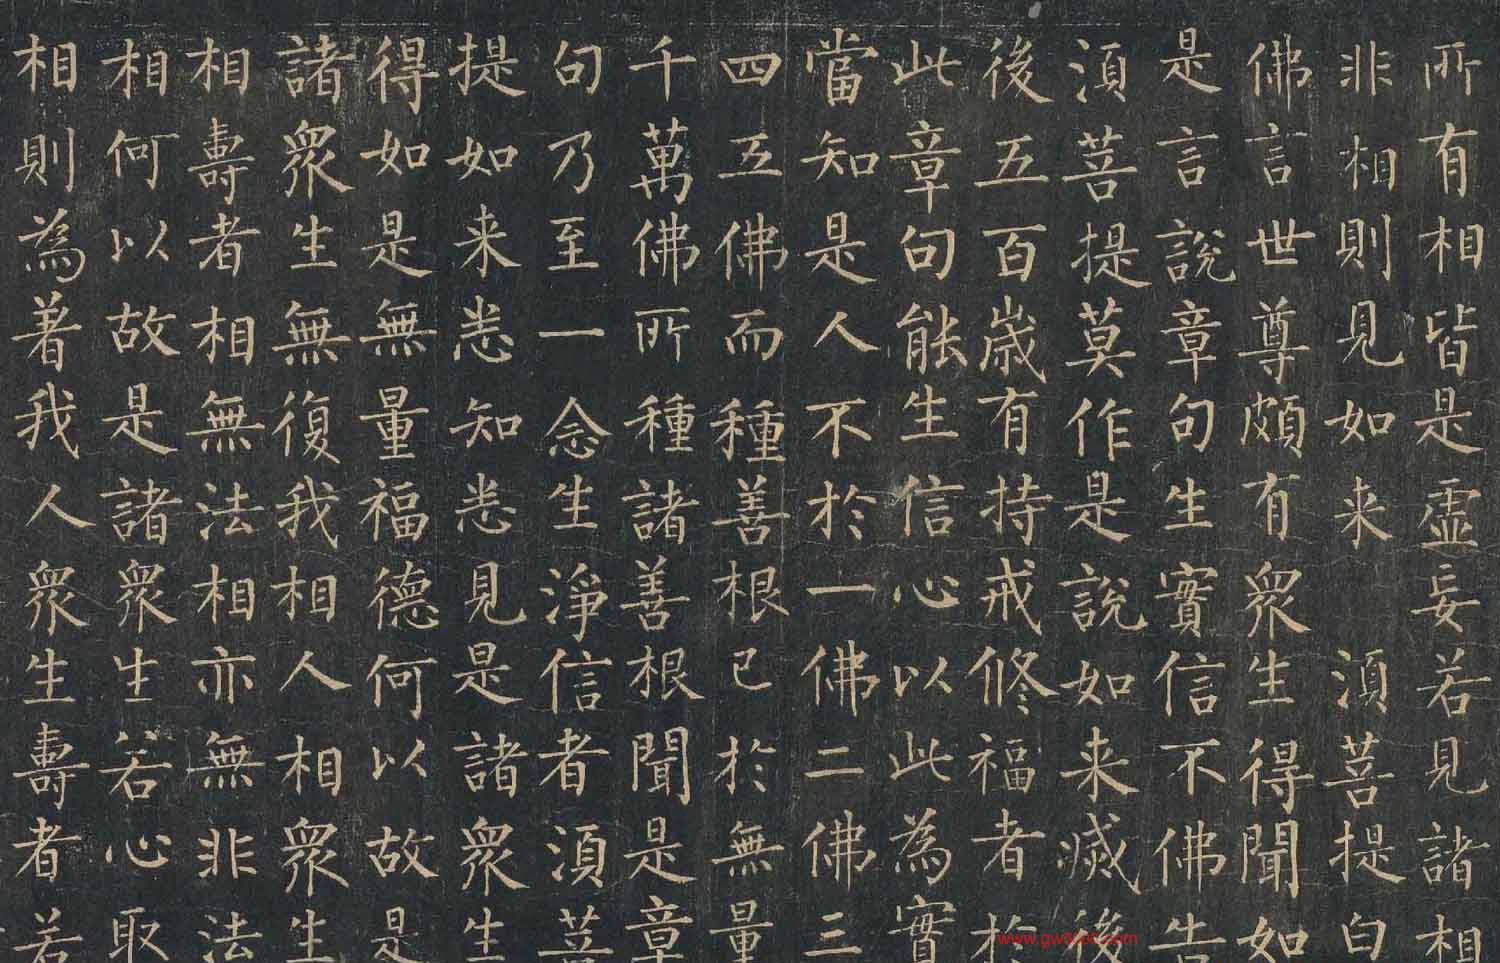 所有相皆是虛妄若見諸相
非相則見如来須菩提白
佛言世尊頗有衆生得聞如
是言說章句生實信不佛告
須菩提莫作是說如来滅後
後五百歲有持戒修福者於
此章句能生信心以此為實
當知是人不於一佛二佛三
四五佛而種善根已於無量
千萬佛所種諸善根聞是章
句乃至一念生淨信者須菩
提如来悉知悉見是諸衆生
得如是無量福德何以故是
諸衆生無復我相人相衆生
相壽者相無法相亦無非法
相何以故是諸衆生若心取
相則為著我人衆生壽者若